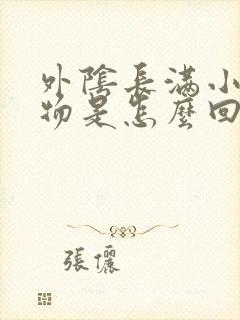 外陰長滿小
物是怎麼回
張儷